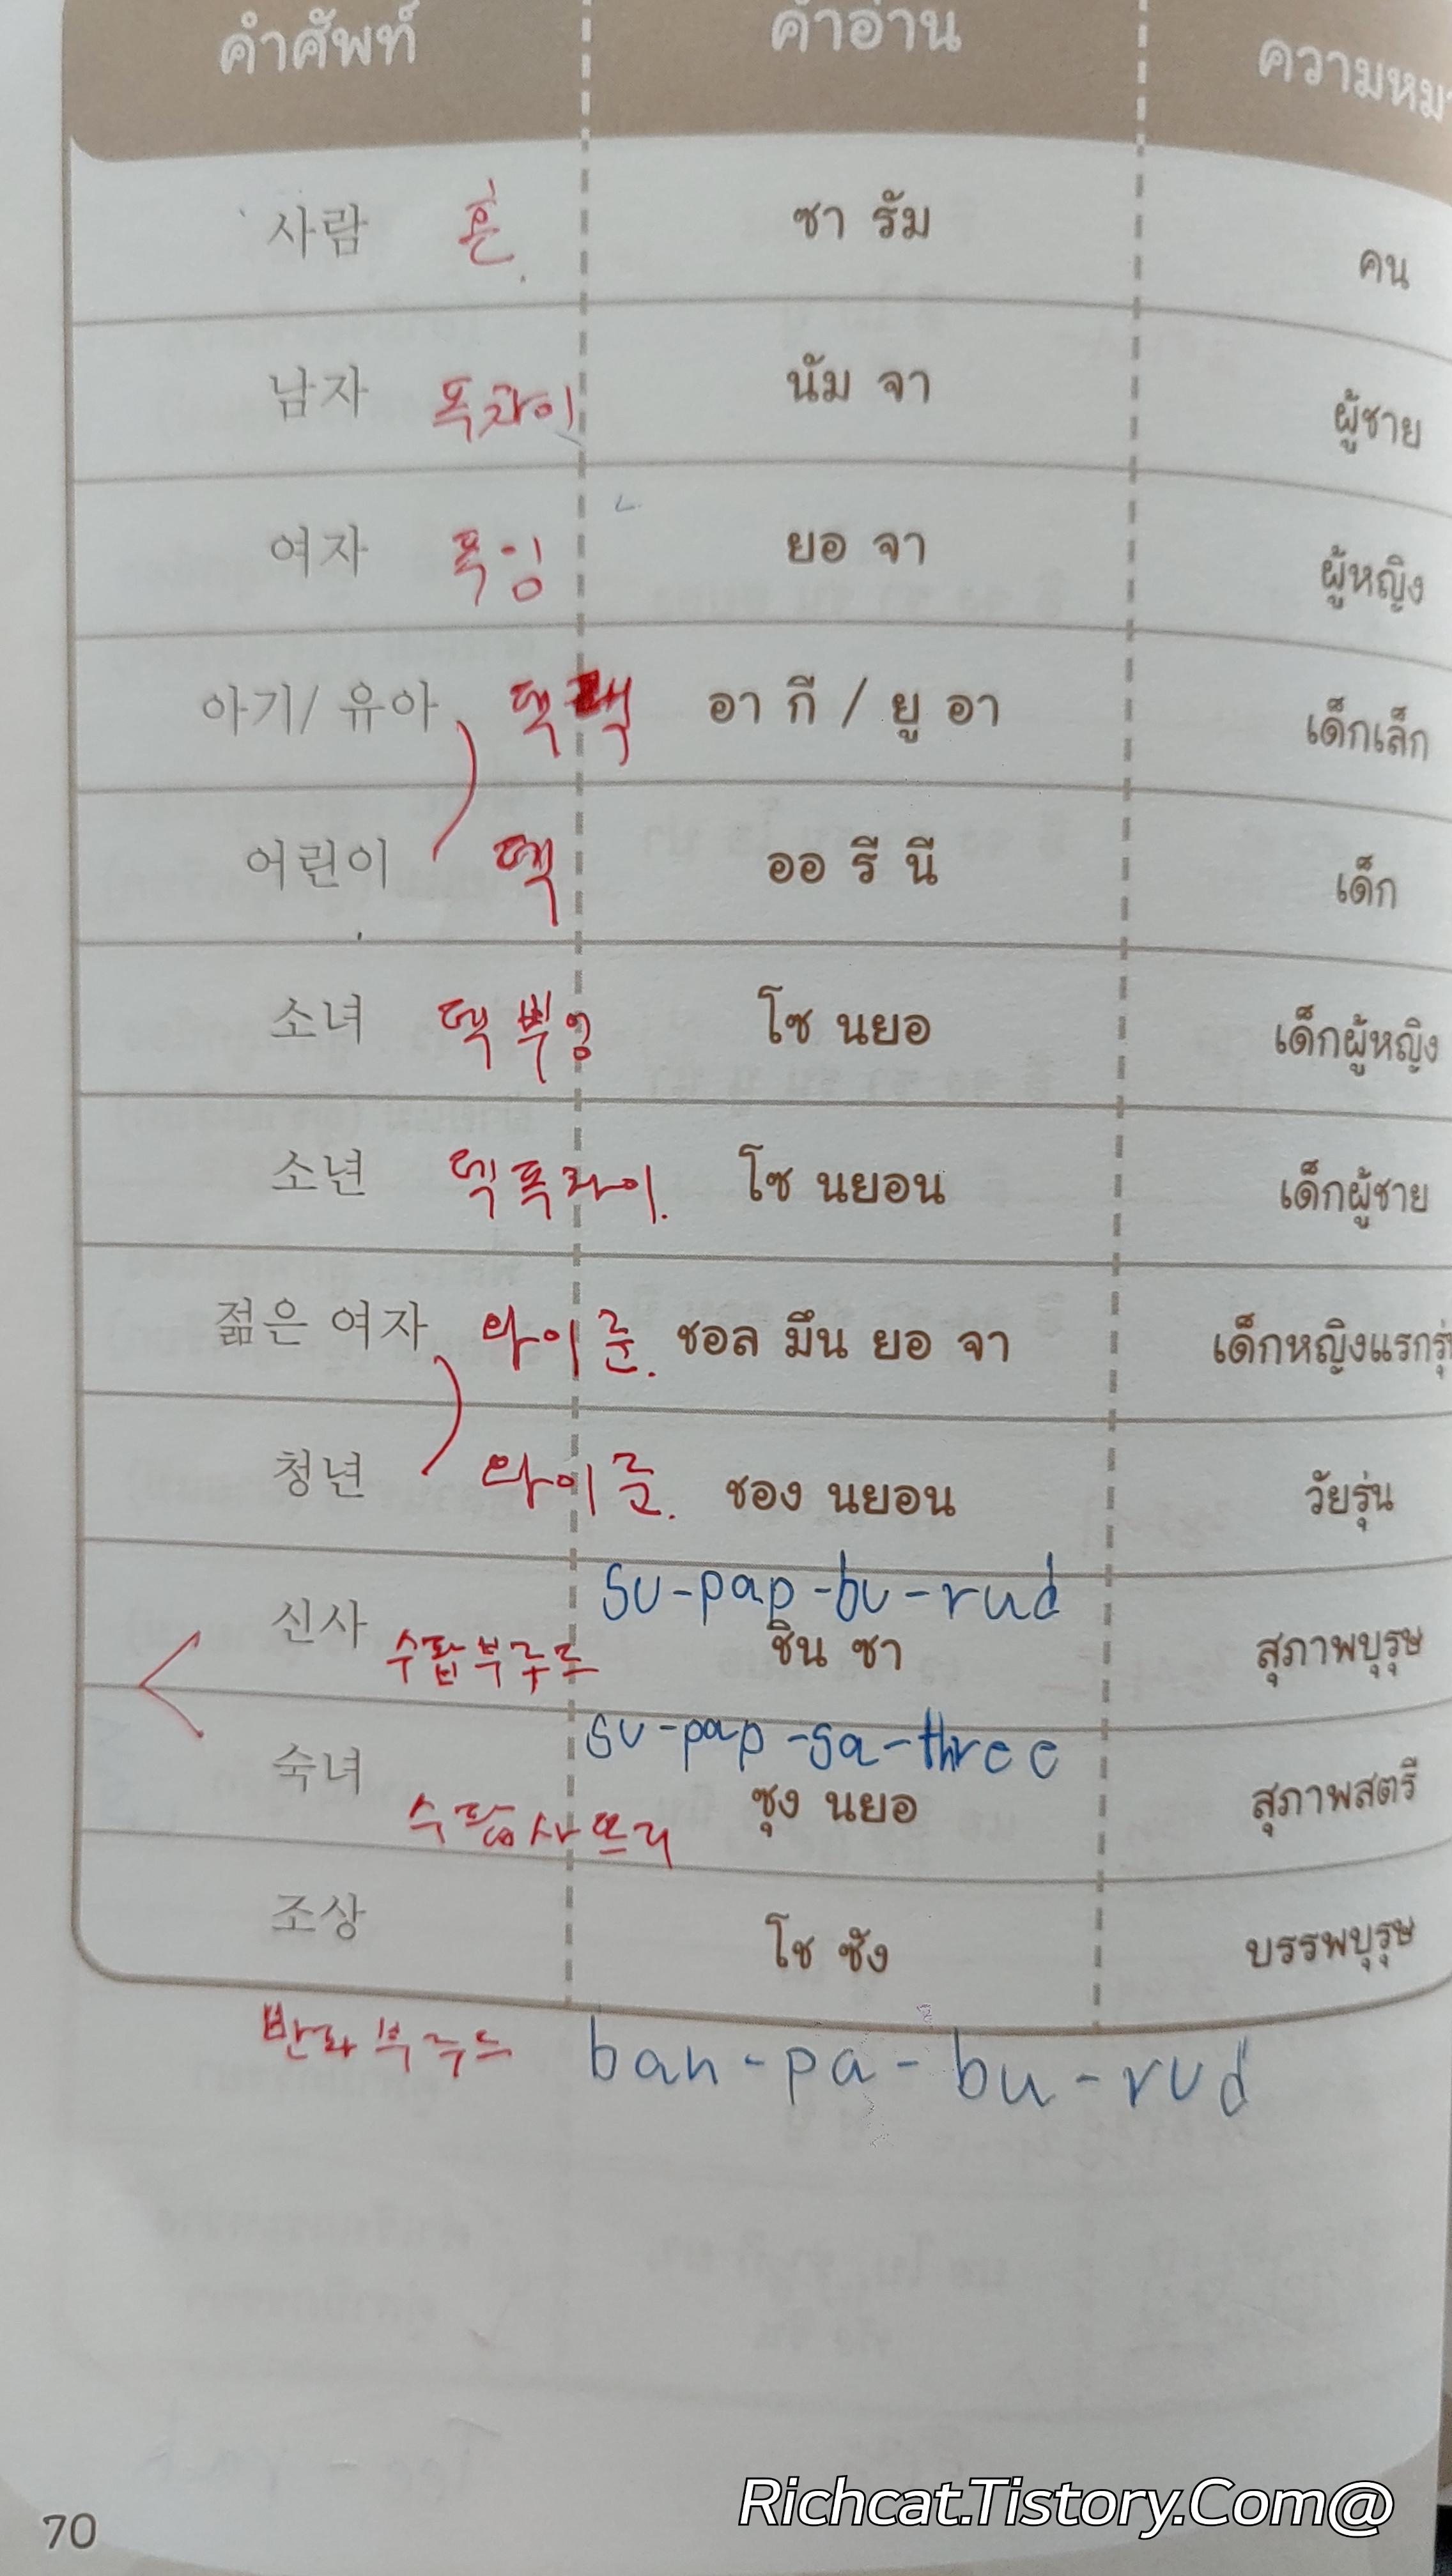 คำศัพท์ คำอ่าน
사람 흔 ซา รัม คน
남자 폭자이 นัม จา ผู้ชาย
여자 ยอ จา ผู้หญิง
아기/ 유아 덱 อา กี / ยู อา เด็กเล็ก
어린이 덱 ออ รี นี เด็ก
소녀 덱 뿌잉 โซ นยอ เด็กผู้หญิง
소년 덱폭자이. โซ นยอน เด็กผู้ชาย
젊은 여자 와이룬. ชอล มึน ยอ จา
청년 와이룬. ชอง นยอน วัยรุ่น
su-pap-bu-rud
신사 수팝부루드 ชิน ซา สุภาพบุรุษ
su-pap-sa-three
숙녀 수팝사뜨리 ซุง นยอ สุภาพสตรี
조상 โช ซัง บรรพบุรุษ
반파부루드 ban-pa-bu-rud
Richcat.Tistory.Com@
70